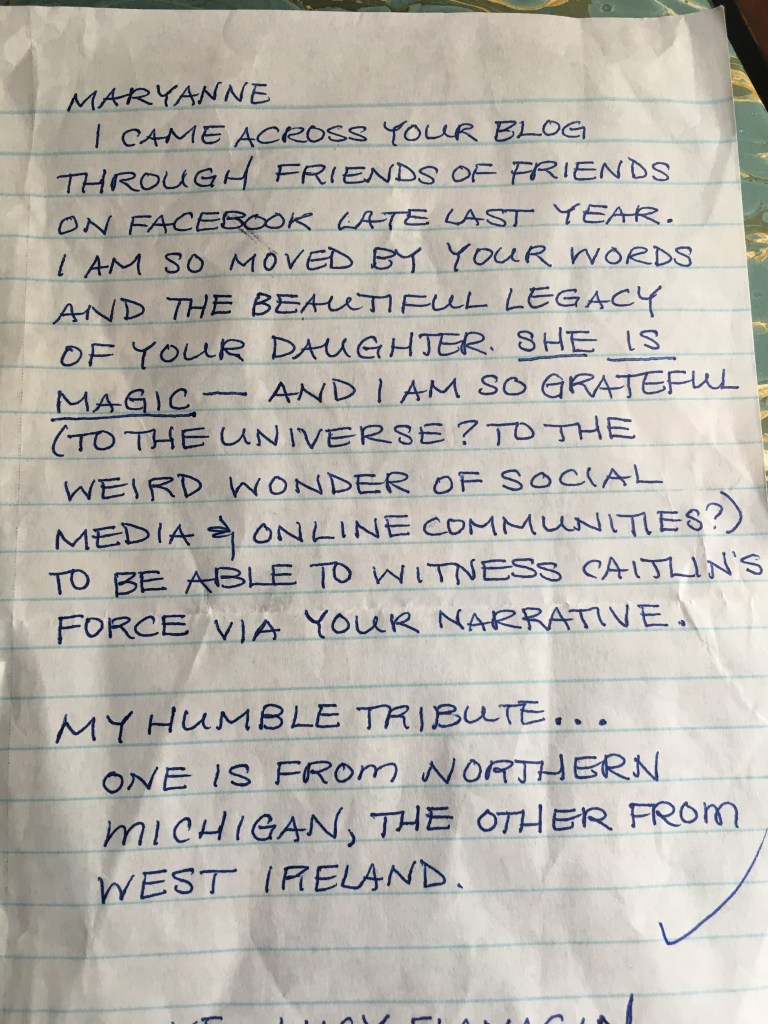 MARYANNE
I CAME ACROSS YOUR BLOG
THROUGH FRIENDS OF FRIENDS
ON FACEBOOK LATE LAST YEAR.
I AM SO MOVED BY YOUR WORDS
AND THE BEAUTIFUL LEGACY
OF YOUR DAUGHTER. SHE IS
MAGIC — AND I AM SO GRATEFUL
(TO THE UNIVERSE? TO THE
WEIRD WONDER OF SOCIAL
MEDIA & ONLINE COMMUNITIES?)
TO BE ABLE TO WITNESS CAITLIN'S
FORCE VIA YOUR NARRATIVE.
MY HUMBLE TRIBUTE...
ONE IS FROM NORTHERN
MICHIGAN, THE OTHER FROM
WEST IRELAND.